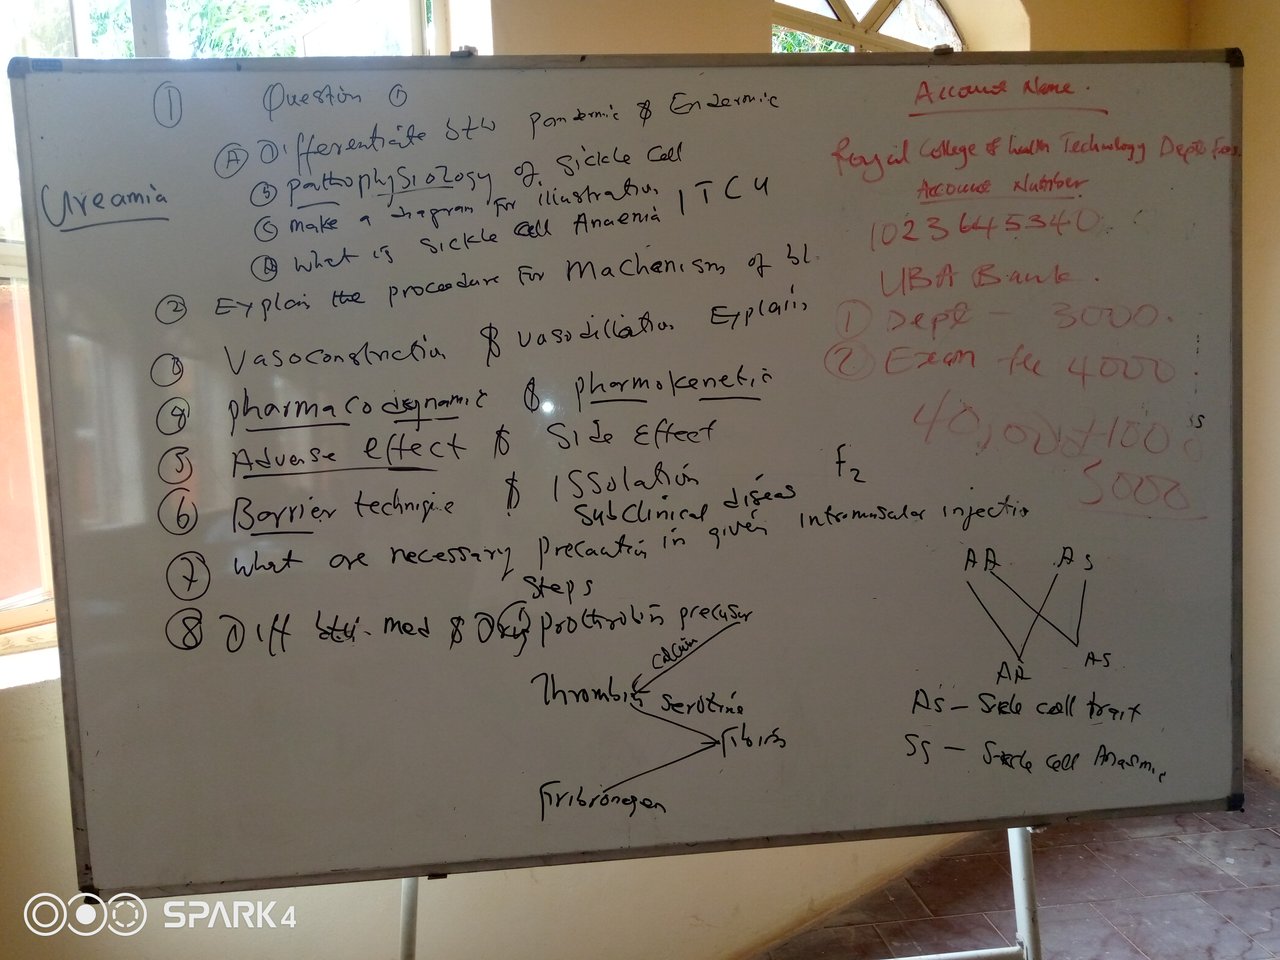 ① Question ①
Ⓐ Differentiate btw pandemic & Endemic
Ureamia
Ⓑ pathophysiology of sickle cell
Ⓒ make a diagram for illustration
Ⓓ What is sickle cell Anaemia | TCU
② Explain the procedure for machenism of bl.
③ Vasoconstriction & vasodilation Explain
④ pharmacodynamic & pharmokenetic
⑤ Adverse effect & Side Effect
⑥ Barrier technique & Issolation
subclinical diseas
⑦ what are necessary precaution in given intromuscular injection
steps
⑧ Diff btw. med & Drug
prothrobin precusur
calcium
Thrombin
Serotine
Fibirin
Fribronogen
Account Name.
Royal College of Health Technology Dept Fees
Account Number
1023645340
UBA Bank.
① Dept - 3000.
② Exam fee 4000
40,000+1000
5000
is
F2
AA As
AA AS
As - Sickle cell trait
SS - Sickle cell Anaemic
SPARK 4